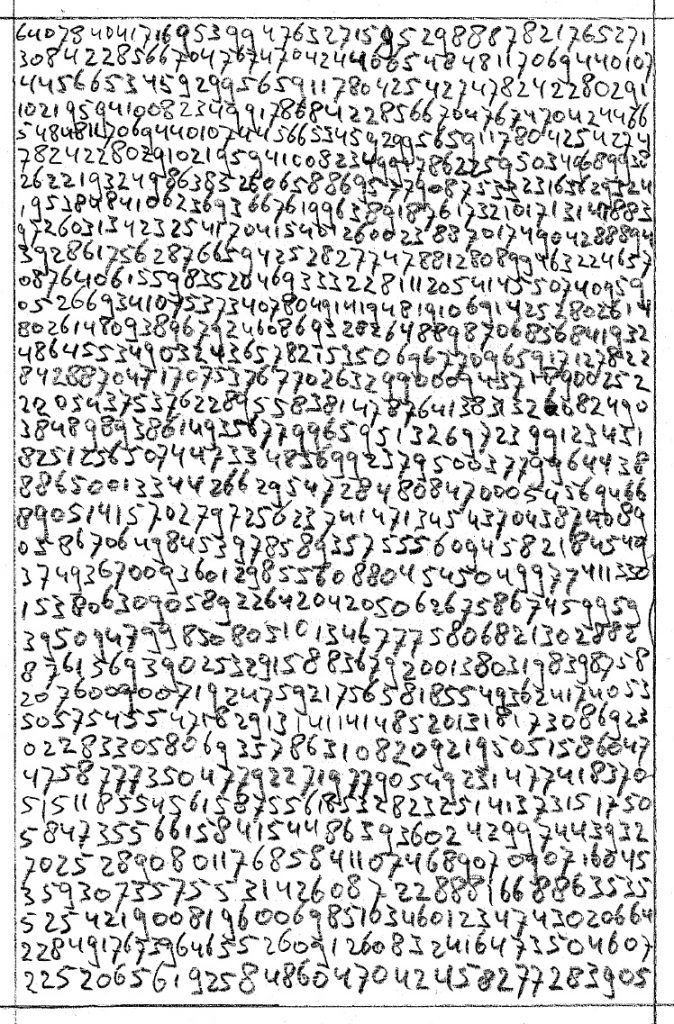 64078404041716953994763271595298887821765271
308422856670476747042446654848117069440107
4456665345929956591178042542747824228029​1
1021959410082349917868422856670476747042​4466
548481170694401074456653459299565911780425427​4
782422802910219594100823499178622595034689938
26221932498638526065886957790875332231636293​24
195380841062369366761996389187617321017131471883
95260313423254170415401260023883701749042888​94
392861756287665942528277478812808994632246​57
0876406155983520469333228111205414550740959
052669341075373407804914194819106914252802614
8026148093896792460869328264889870685684193​2
486455349032436578215350696770965917127822
8428870471707537677026329900094371890025​2
22054375376228955838147876413831326082490
3848989386149356779965951326972399123431
825125650744733485699237950037799​64438
886500133442662954728480847000543694​66
8905141570279725623741471345437043872​4089
0586706498453978589357555609458218454​0
37493670093601298555608804545049977411330
153806309058922642042050626758674599​59
3950947998508051013467775806821302882
876136939025329158836792001380319839875​8
20760090071924759217565818554936241740​53
505754554718291314114148520131817308692​3
022833058069357863108209219505158604​7
475877735047792271977905492314774183​70
515118554561587556185328232514137315175​0
584735566158415448639360242997443932
70252890801176858411074689070907160​45
3593073575531426087228881668863535
52542190081960069851034601234743020664
228491767396465526091260832416473504607
2252065619258486047042458277283905